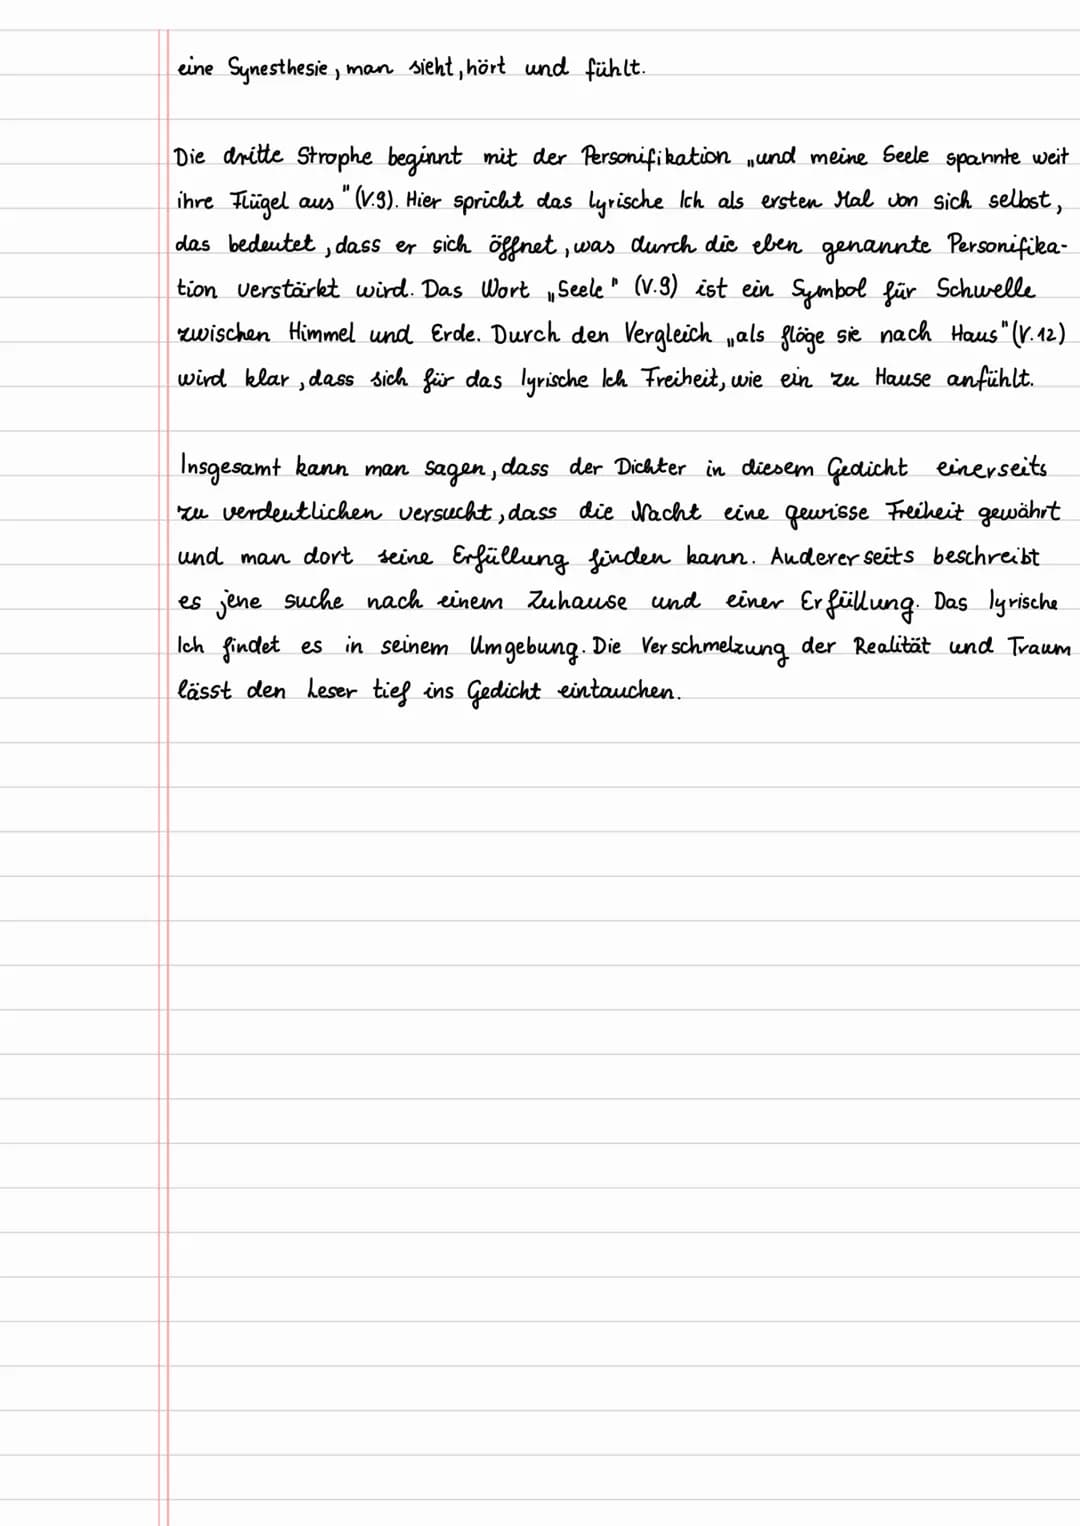 eine Synesthesie, man sieht, hört und fühlt.
Die dritte Strophe beginnt mit der Personifikation „und meine Seele spannte weit
ihre Flügel aus" (V.9). Hier spricht das lyrische Ich als ersten Mal von sich selbst,
das bedeutet, dass er sich öffnet, was durch die eben genannte Personifika-
tion verstärkt wird. Das Wort „Seele" (V.9) ist ein Symbol für Schwelle
zwischen Himmel und Erde. Durch den Vergleich „als flöge sie nach Haus" (V.12)
wird klar, dass sich für das lyrische Ich Freiheit, wie ein zu Hause anfühlt.
Insgesamt kann man sagen, dass der Dichter in diesem Gedicht einerseits
zu verdeutlichen versucht, dass die Nacht eine gewisse Freiheit gewährt
und man dort seine Erfüllung finden kann. Anderer seits beschreibt
es jene suche nach einem Zuhause und einer Erfüllung. Das lyrische
Ich findet es in seinem Umgebung. Die Verschmelzung der Realität und Traum
lässt den Leser tief ins Gedicht eintauchen.